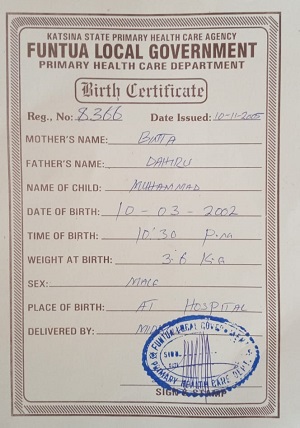 KATSINA STATE PRIMARY HEALTH CARE AGENCY
FUNTUA LOCAL GOVERNMENT
PRIMARY HEALTH CARE DEPARTMENT
Birth Certificate
Reg., No: 8366 Date Issued: 10-11-2005
MOTHER'S NAME: BINTA
FATHER'S NAME: DAHIRU
NAME OF CHILD: MUHAMMAD
DATE OF BIRTH: 10-03-2002
TIME OF BIRTH: 10:30 P.m
WEIGHT AT BIRTH: 3.6 KG
SEX: MALE
PLACE OF BIRTH: AT HOSPITAL
DELIVERED BY:
FUNTUA LOCAL GOVERNMENT
PRIMARY HEALTH CARE DEPT.
SIGN & STAMP